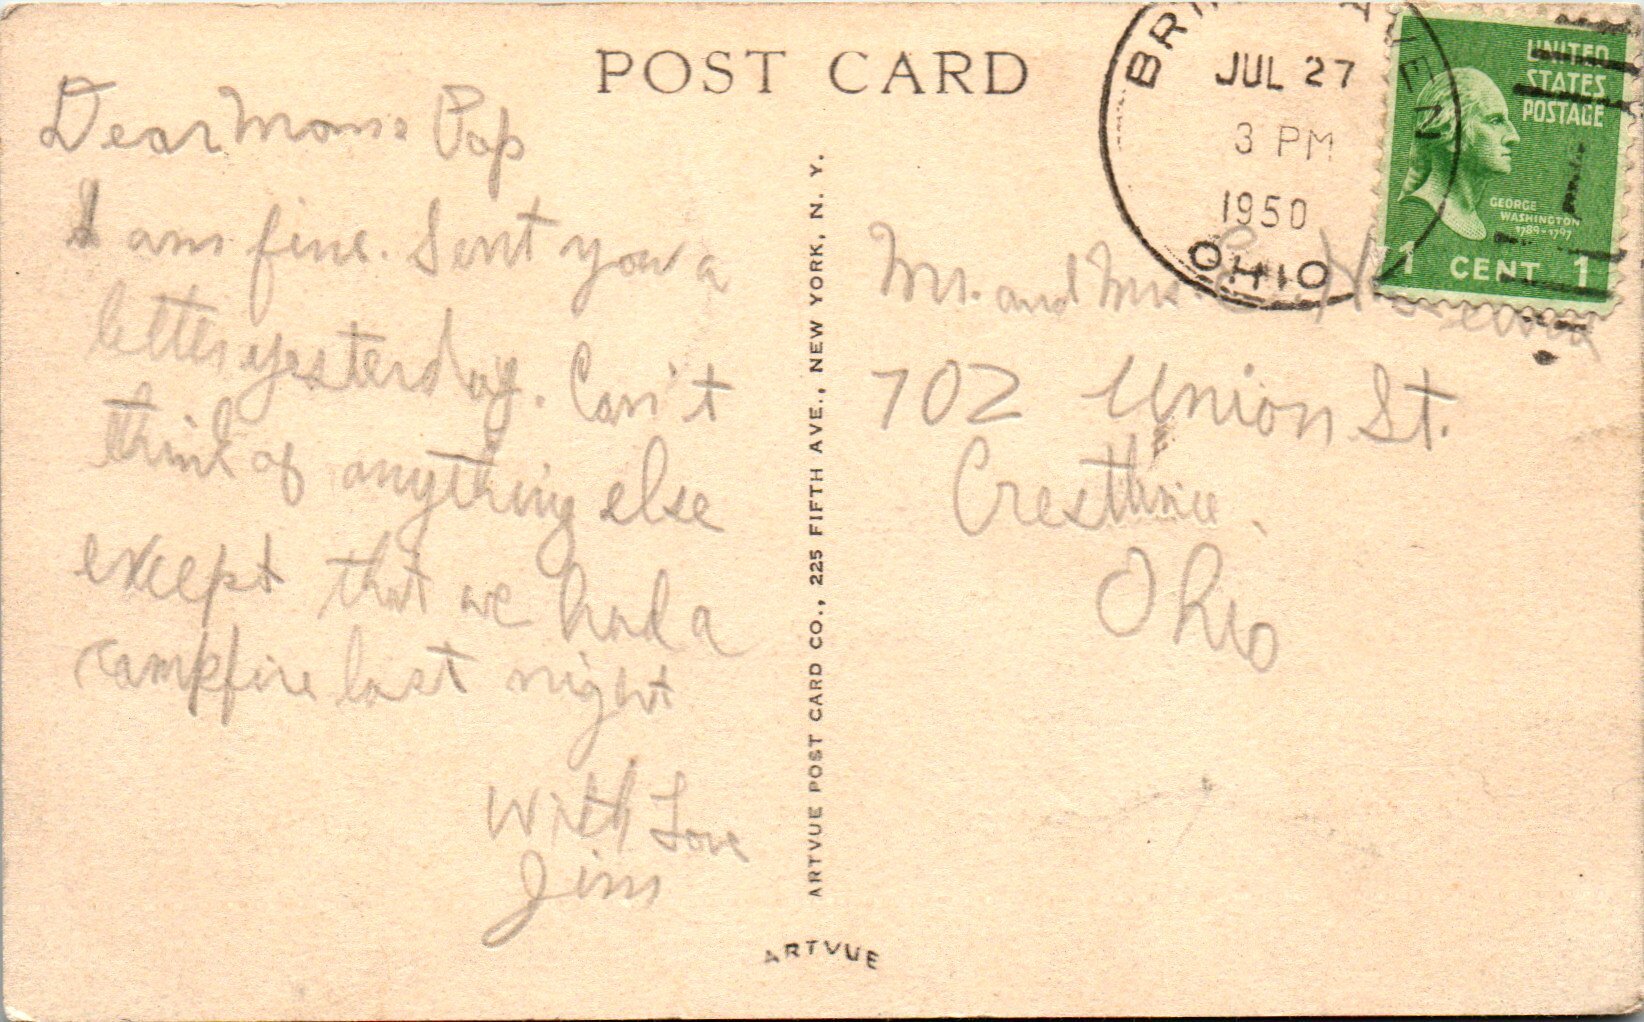 POST CARD
Dear Mom & Pop
I am fine. Sent you a
letter yesterday. Can't
think of anything else
except that we had a
campfire last night
With Love
Jim
ARTVUE POST CARD CO., 225 FIFTH AVE., NEW YORK, N. Y.
ARTVUE
JUL 27
3 PM
1950
OHIO
UNITED
STATES
POSTAGE
GEORGE
WASHINGTON
1789-1797
1 CENT 1
Mr. and Mrs.
702 Union St.
Crestline,
Ohio